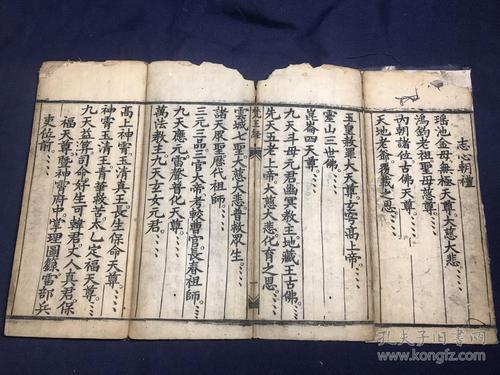 志心朝禮
瑤池金母無極天尊大慈大悲
鴻鈞老祖聖母慈尊
內朝諸位古佛天尊
天地老爺覆載之恩
五皇救罪大天尊玄穹高上帝
靈山三世佛
崑崙四天尊
九天斗母元君幽冥教主地藏王古佛
先天五老上帝大慈大悲化育之恩
雲城七聖大慈大悲普救眾生
諸天眾聖歷代祖師
三元三品三官大帝考較曹官長春祖師
九天應元雷聲普化天尊
萬法教主九天玄女元君
高上神霄玉清真王長生保命天尊
神霄玉清王青華救苦太乙定福天尊
九天益算司命好生可韓君丈人真君保
福天尊暨神霄府中掌理圖籙雷部兵
吏位前
孔夫子旧书网
www.kongfz.com